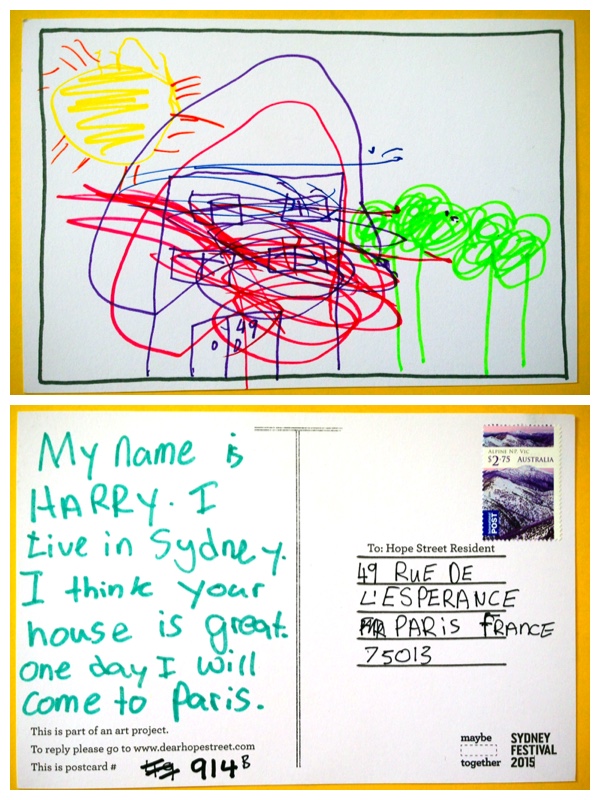 49
My name is
HARRY. I
Live in Sydney.
I think your
house is great.
one day I will
come to Paris.
This is part of an art project.
To reply please go to www.dearhopestreet.com
This is postcard # 914B
ALPINE NP, VIC
$2.75 AUSTRALIA
POST
To: Hope Street Resident
49 RUE DE
L'ESPERANCE
PARIS FRANCE
75013
maybe
together
SYDNEY
FESTIVAL
2015